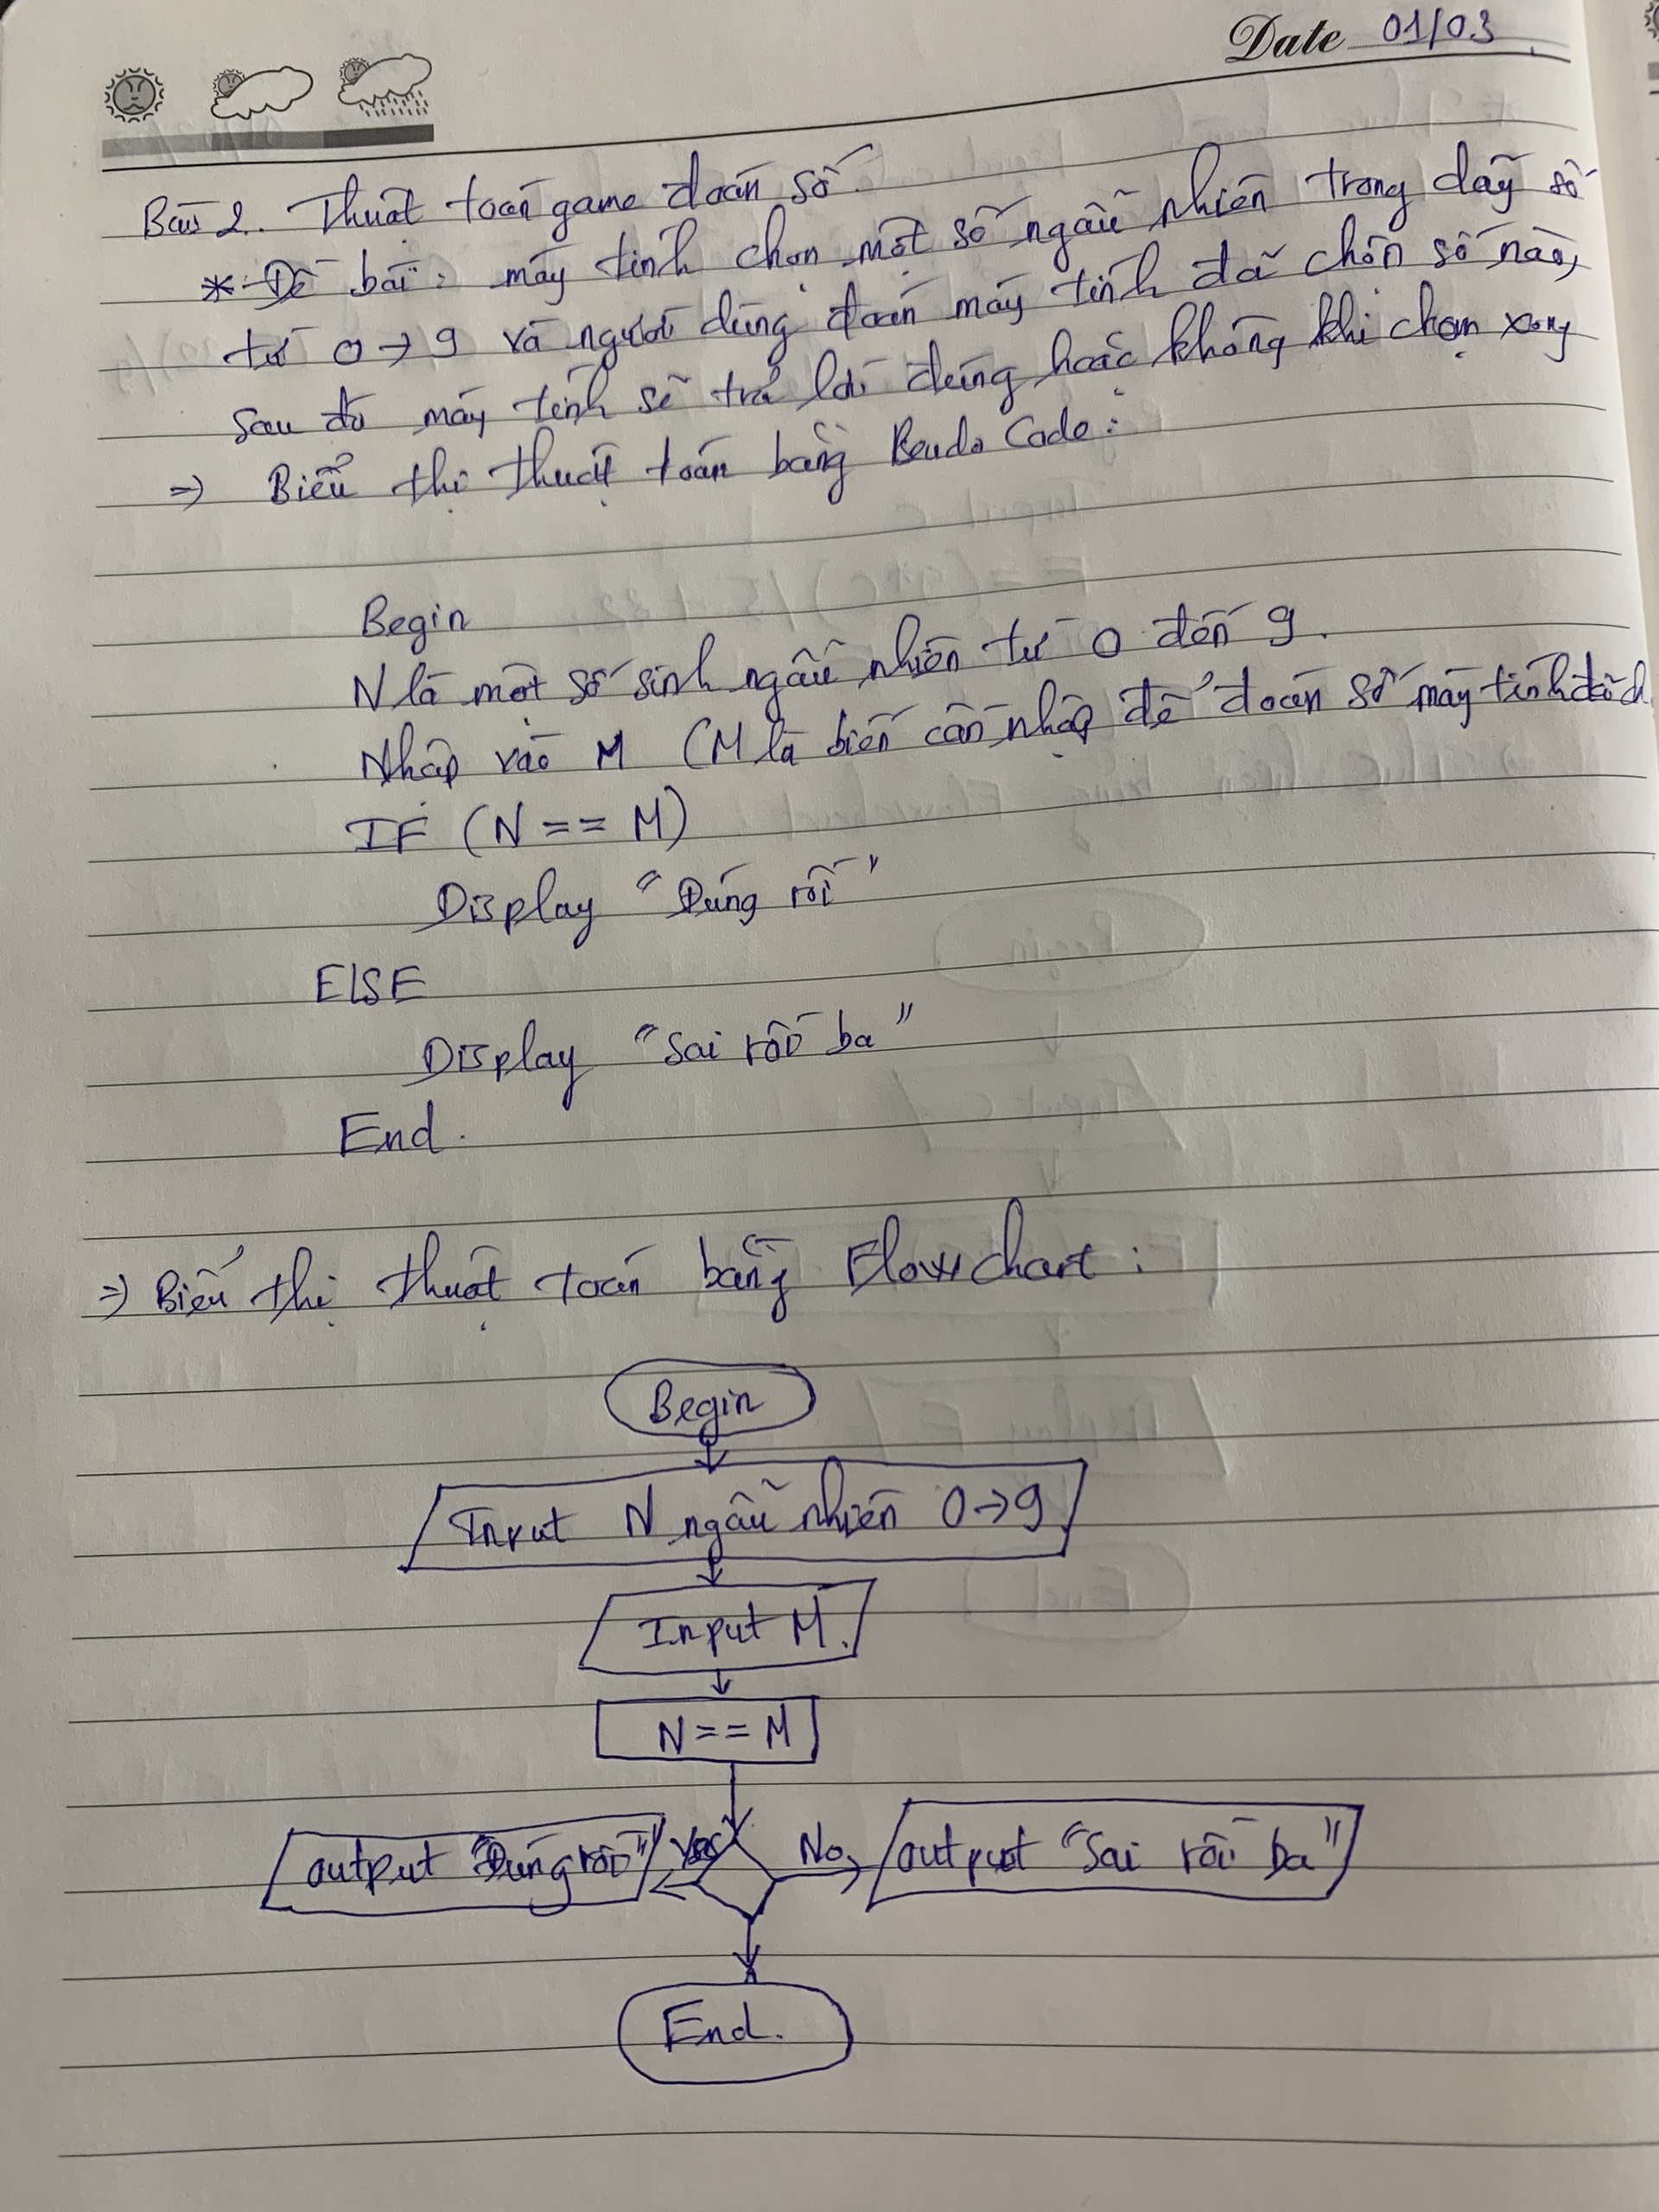 Date 01/03
Bài 2. Thuật toán game đoán số.
* Đề bài: máy tính chọn một số ngẫu nhiên trong dãy số
từ 0 → 9 và người dùng đoán máy tính đã chọn số nào,
sau đó máy tính sẽ trả lời đúng hoặc không khi chọn xong
⇒ Biểu thị thuật toán bằng Code:
Begin
N là một số sinh ngẫu nhiên từ 0 đến 9.
Nhập vào M (M là biến cần nhập để đoán số máy tính đã ch
IF (N == M)
Display "Đúng rồi"
ELSE
Display "Sai rồi ba"
End.
⇒ Biểu thị thuật toán bằng Flowchart:
Begin
Input N ngẫu nhiên 0→9
Input M.
N == M
output "Đúng rồi" Yes No output "Sai rồi ba"
End.